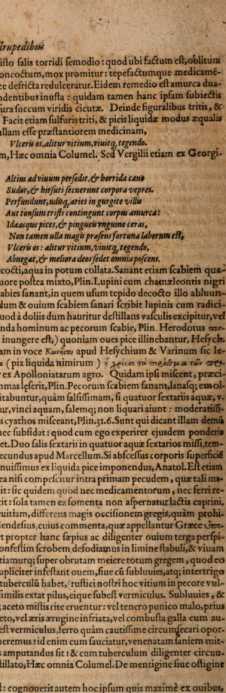 rupedibus
isto salis torridi semodio : quod ubi factum est, oblitum
oncoctum, mox promitur : tepefactumque medicamē-
ce defricta redulceratur. Eidem remedio est amurca dua-
dentibus inusta : quidam tamen hanc ipsam subiectis
ura succum viridis cicutæ. Deinde figuralibus tritis, &
Facit etiam sulfuris triti, & picis liquidæ modus æqualis
ullam esse præstantiorem medicinam,
Vlceris os, alitur vitium, vivitq; tegendo.
m, Hæc omnia Columel. Sed Vergilii etiam ex Georgi-
Altius ad vivum persedit, & horrida cano
Sudor, & hirsuti secuerunt corpora vepres.
Perfundunt, udisq; aries in gurgite villis
Aut tonsum tristi contingunt corpus amurca:
Idæasque pices, & pingues unguine ceras,
Non tamen ulla magis præsens fortuna laborum est,
Vlceris os : alitur vitium, vivitq; tegendo,
Abnegat, & meliora deos sedet omnia poscens.
cocti, aqua in potum collata. Sanant etiam scabiem qua-
uore postea mixto, Plin. Lupini cum chamæleontis nigri
abies sanant, in quem usum topido decocto illo abluun-
lum & ouium scabiem sanari scribit lupinis cum radici-
uod à doliis dum hauritur destillans vasculis excipitur, vel
nda hominum ac pecorum scabie, Plin. Herodotus
inungere est, ) quoniam oues pice illinebantur. Hesych.
am in voce apud Hesychium & Varinum sic le-
( pix liquida nimirum )
ex Apollonatarum agro. Quidam ipsi miscent, præci-
mas leserit, Plin. Pecorum scabiem sanans, lansaq; emol-
itabuntur, quàm salsissimam, si quatuor sextarii aquæ, v.
ur, vinci aquam, salemq; non liquari aiunt : moderatissi-
s cyathos misceant, Plin. 31. 6. Sunt qui dicant illam demū
nec subsidat : quod cum ego experiter ejusdem ponderis
et. Duo salis sextarii in quatuor aquæ sextarios missi, tem-
ecundus apud Marcellum. Si abscessus corporis superficiē
nuissimus ex liquida pice imponendus, Anatol. Est etiam
ea nisi compescitur intra primam pecudem, quæ tali ma-
it : sic quidem quod nec medicamentorum, nec ferri re-
it : sola tamen ex fomenta non aspernatur lactis caprini,
uitiam, differens magis occisionem gregis, quàm prohi-
lendesius, cuius commenta, quæ appellantur Græce
t propter hanc sæpius ac diligenter ouium terga perspi-
onfestim scrobem defodiamus in limine stabuli, & vivam
tiamurq; super obrutam meare totum gregem, quod eo
upliciter infestant ouem, siue cū subluuies, atq; intertrigo
tuberculū habet, rustici nostri hoc vitium in pecore vul-
similis extat pilus, eique subest vermiculus. Subluuies, &
, aceto mistis rite eruentur : vel tenero punico malo, prius
eto, vel æris ærugine infriata, vel combusta galla cum au-
est vermiculus, ferro quàm cautissime circumgerari opor-
beremus : id enim cum sauciatur, venenatam saniem emit-
amputandus sit : & cum tuberculum diligenter circun-
tillato, Hæc omnia Columel. De mentigine siue ostigine
: cognouerit autem hoc ipsum quis maximè ex ouibus,